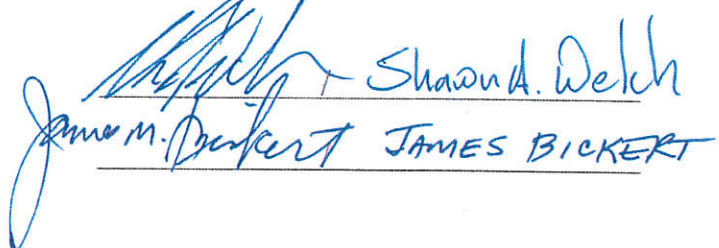 Shawn A. Welch
James M. Bickert JAMES BICKERT